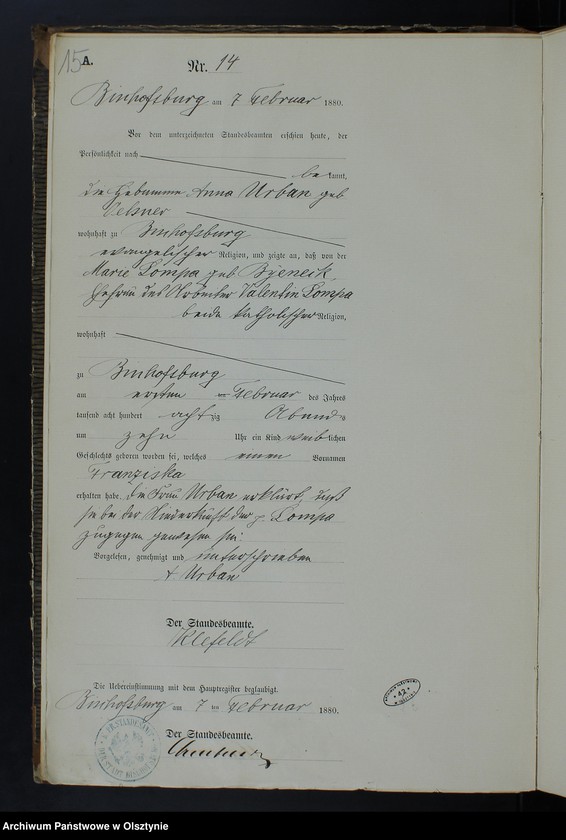 15
A.
Nr. 14
Bischofsburg am 7 Februar 1880.
Vor dem unterzeichneten Standesbeamten erschien heute, der
Persönlichkeit nach
bekannt,
die Hebamme Anna Urban geb
Oelsner
wohnhaft zu Bischofsburg
evangelischer Religion, und zeigte an, daß von der
Marie Lompa geb
Ehefrau des Arbeiter Valentin Lompa
beide katholischer Religion,
wohnhaft
zu Bischofsburg
am ersten Februar des Jahres
tausend acht hundert achtzig Abends
um zehn Uhr ein Kind weiblichen
Geschlechts geboren worden sei, welches einen Vornamen
Franziska
erhalten habe. Die Frau Urban erklärt, daß
sie bei der Niederkunft der p. Lompa
zugegen gewesen sei.
Vorgelesen, genehmigt und unterschrieben
Urban
Der Standesbeamte.
Klefeldt
Die Uebereinstimmung mit dem Hauptregister beglaubigt.
Bischofsburg am 7 ten Februar 1880.
Der Standesbeamte.
Archiwum Państwowe w Olsztynie